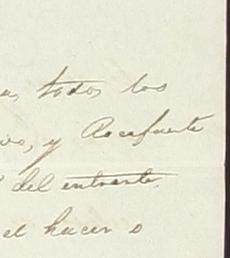 a, todos los
vo, y Rocafuerte
del entrante
el hacer o